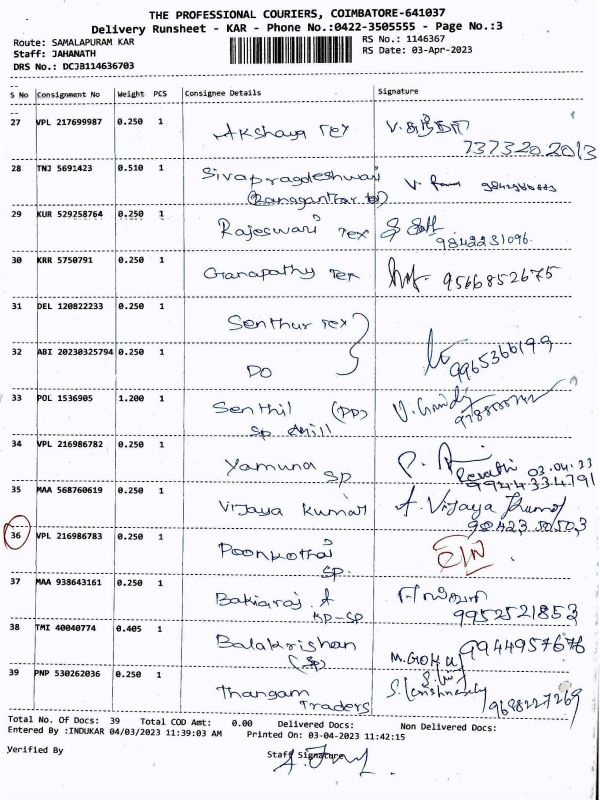 THE PROFESSIONAL COURIERS, COIMBATORE-641037
Delivery Runsheet - KAR - Phone No.:0422-3505555 - Page No.:3
Route: SAMALAPURAM KAR
Staff: JAHANATH
DRS No.: DCJB114636703
RS No.: 1146367
RS Date: 03-Apr-2023
S No Consignment No Weight PCS Consignee Details Signature
27 VPL 217699987 0.250 1 Akshaya Tex
7373202013
28 TNJ 5691423 0.510 1 Sivapragdeshwari
29 KUR 529258764 0.250 1 Rajeswari Tex
9842231096.
30 KRR 5750791 0.250 1 Ganapathy Tex 9566852675
31 DEL 120822233 0.250 1 Senthur Tex
32 ABI 20230325794 0.250 1 DO 9965366199
33 POL 1536905 1.200 1 Senthil (PP)
SP Mill
34 VPL 216986782 0.250 1 Yamuna SP P.
Revathi 03.04.23
9944334791
35 MAA 568760619 0.250 1 Vijaya Kumar A. Vijaya Kumar
98423 50503
36 VPL 216986783 0.250 1 Poonkothai
SP.
37 MAA 938643161 0.250 1 Bakiaraj A
KP-SP 9952521853
38 TMI 40040774 0.405 1 Balakrishan
(SP) M. Gokul 9944957676
39 PNP 530262036 0.250 1 Thangam
Traders 9698227269
Total No. Of Docs: 39 Total COD Amt: 0.00 Delivered Docs: Non Delivered Docs:
Entered By :INDUKAR 04/03/2023 11:39:03 AM Printed On: 03-04-2023 11:42:15
Verified By Staff Signature